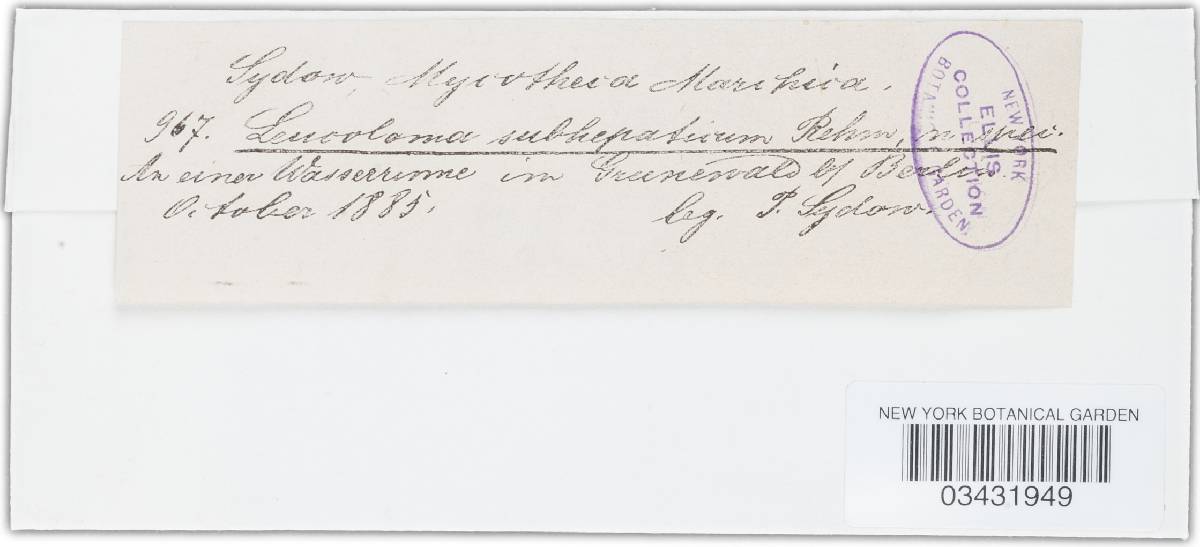 Sydow, Mycotheca Marchica.
967. Leucoloma subhepaticum Rehm, n. spec.
An einer Wasserrinne im Grunewald b/ Berlin.
October 1885. leg. P. Sydow.
NEW YORK
BOTANICAL GARDEN.
ELLIS
COLLECTION
NEW YORK BOTANICAL GARDEN
03431949